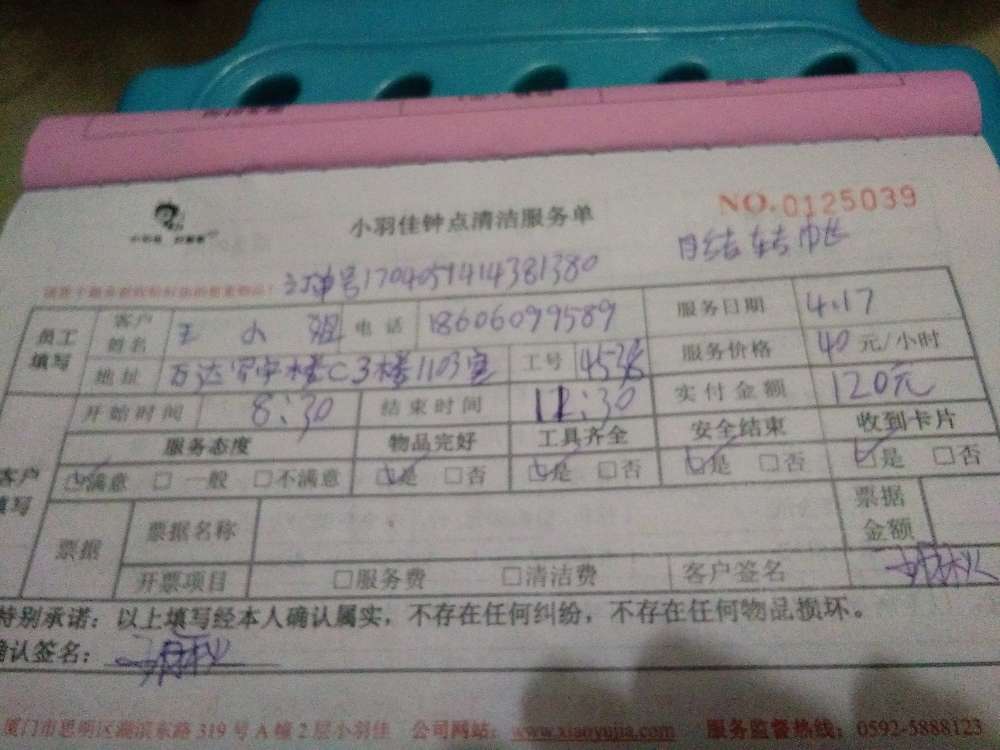 小羽佳钟点清洁服务单
NO.0125039
月结转帐
订单号1704059414381380
员工填写 客户姓名 王小姐 电话 18606099589 服务日期 4.17
地址 万达写字楼C3楼1103室 工号 4528 服务价格 40元/小时
开始时间 8:30 结束时间 11:30 实付金额 120元
客户填写 服务态度 物品完好 工具齐全 安全结束 收到卡片
☑满意 □一般 □不满意 ☑是 □否 ☑是 □否 ☑是 □否 ☑是 □否
票据 票据名称 票据金额
开票项目 □服务费 □清洁费 客户签名
特别承诺：以上填写经本人确认属实，不存在任何纠纷，不存在任何物品损坏。
确认签名：
厦门市思明区湖滨东路319号A幢2层小羽佳 公司网站：www.xiaoyujia.com 服务监督热线：0592-5888123